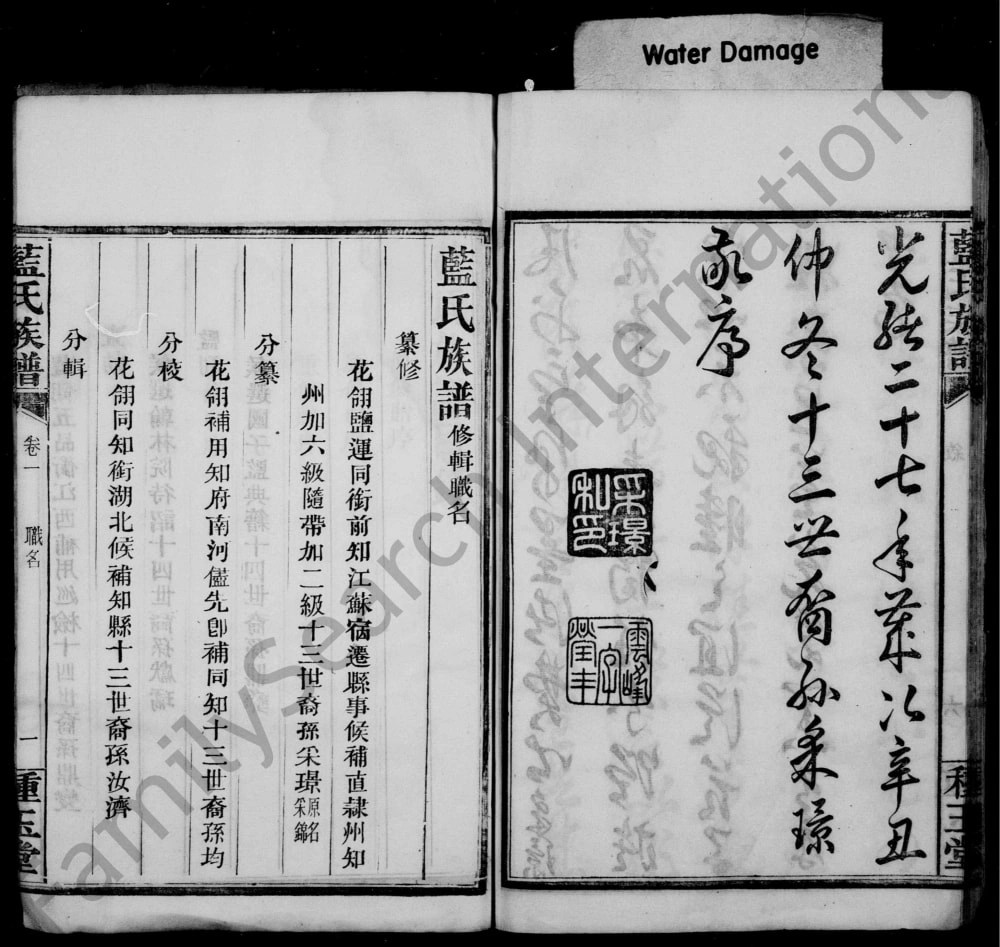 Water Damage
藍氏族譜
種玉堂
光緒二十七年歲次辛丑
仲冬十三世裔孫采璟
敬序
采璟
和印
雲峰
一字
瑩丰
藍氏族譜修輯職名
纂修
花翎鹽運同銜前知江蘇宿遷縣事候補直隷州知
州加六級隨帶加二級十三世裔孫采璟原名采錦
分纂
花翎補用知府南河儘先卽補同知十三世裔孫均
分校
花翎同知銜湖北候補知縣十三世裔孫汝濟
分輯
藍氏族譜
卷一
職名
一
種玉堂
FamilySearch International